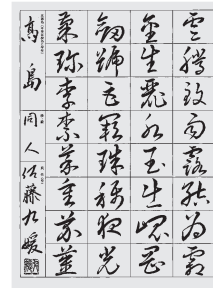 雲騰致雨露結為霜
金生麗水玉出崑岡
劒號巨闕珠稱夜光
菓珍李柰菜重芥薑
髙島
同人佐藤九媛